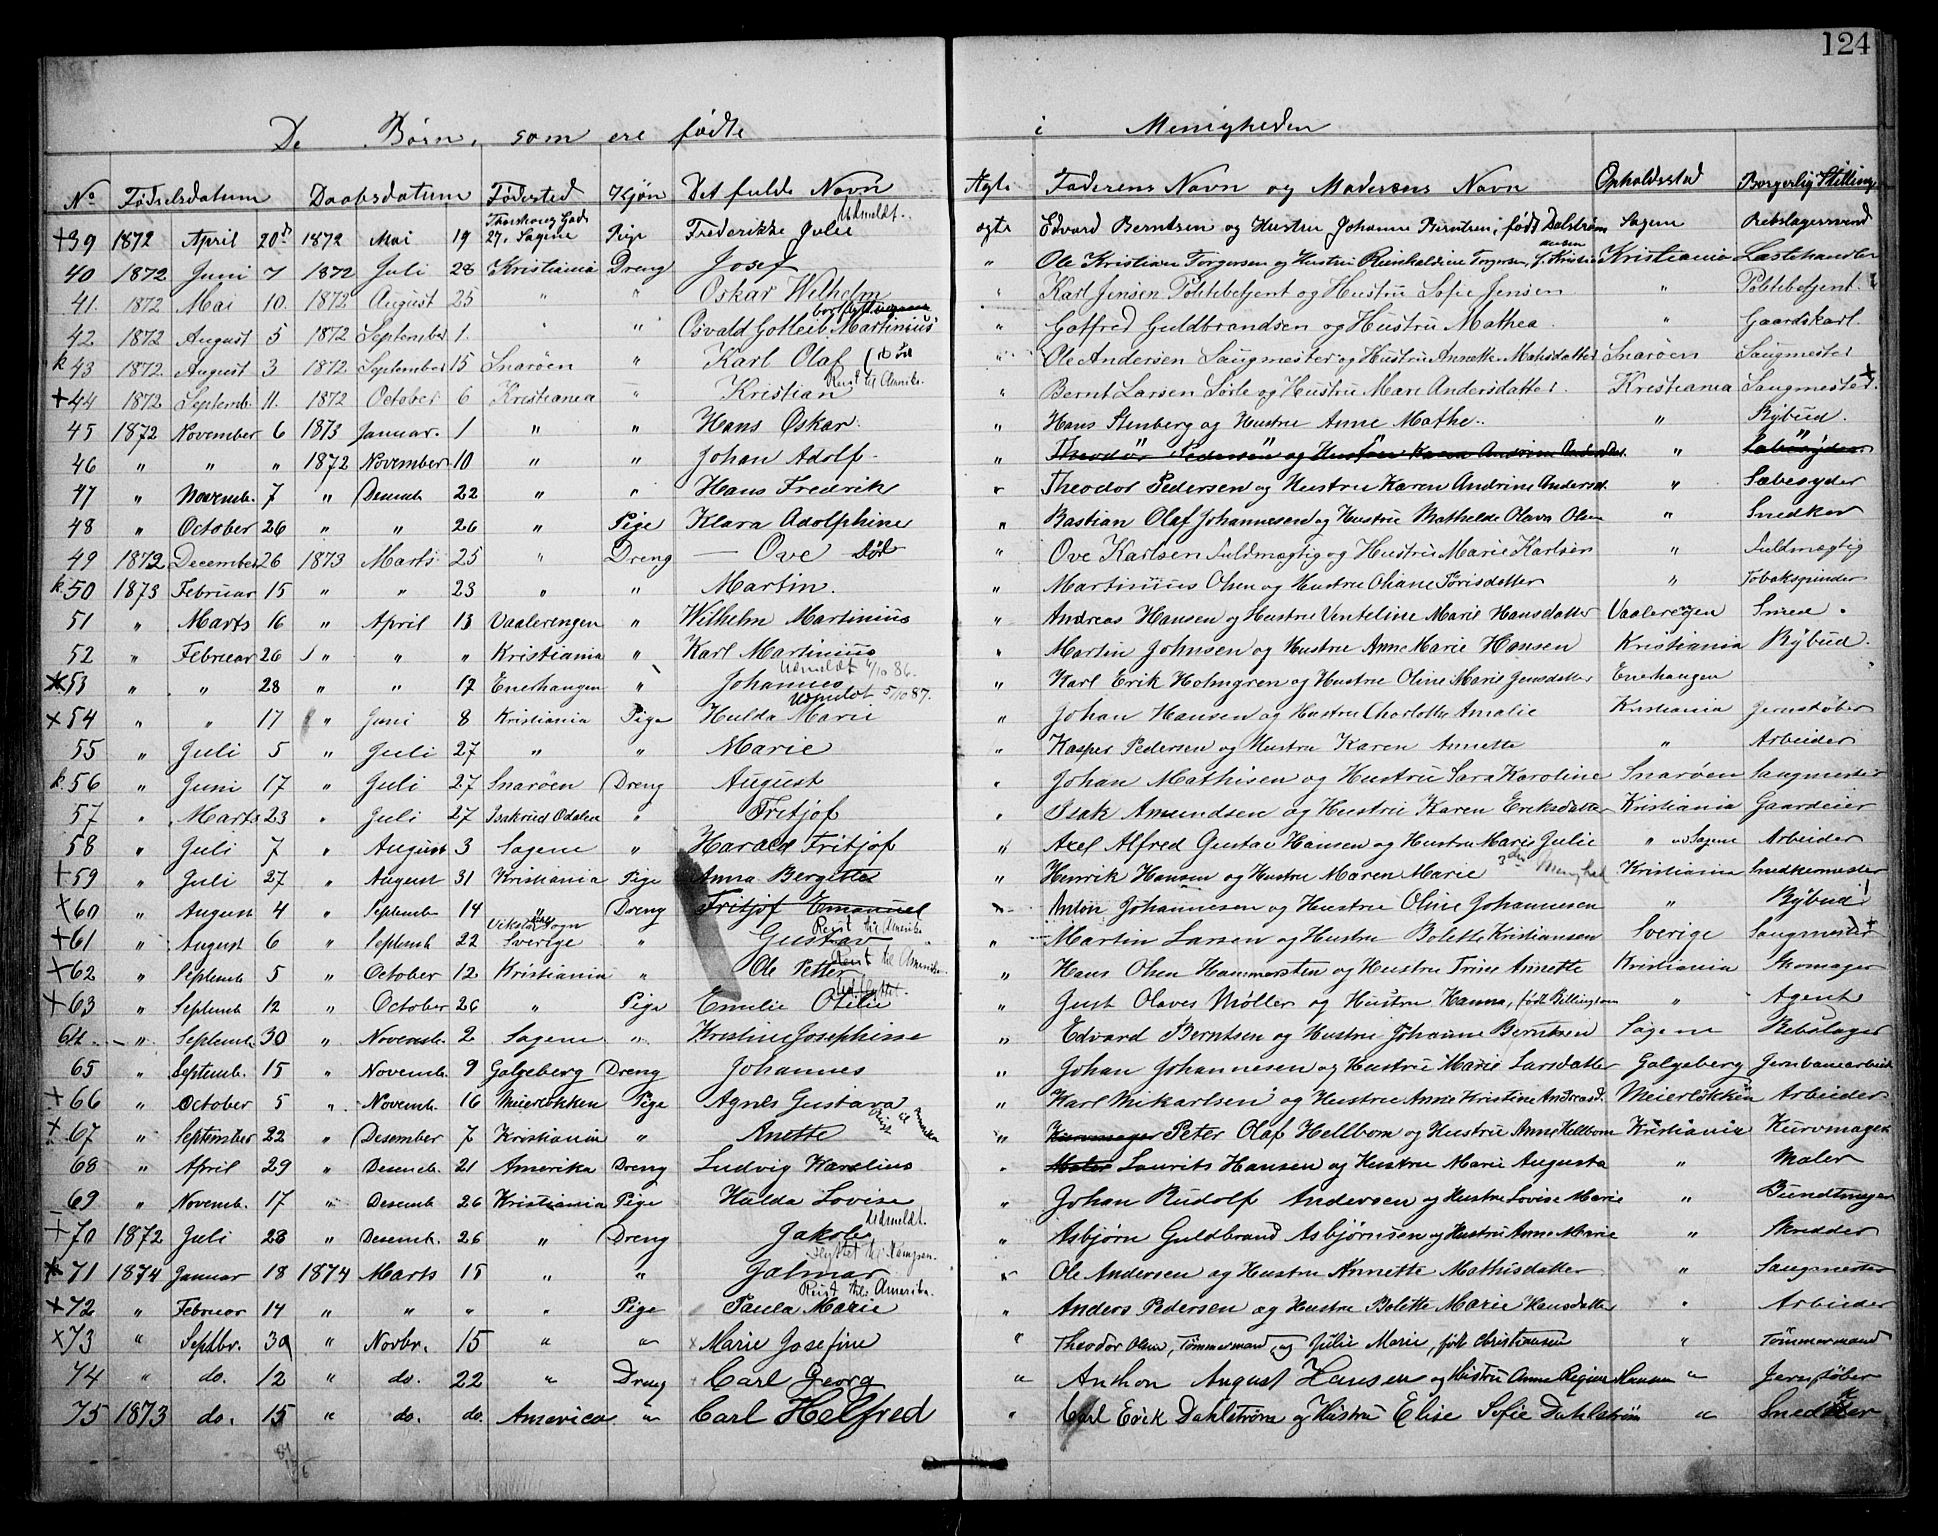 124
De Børn, som ere fødte i Menigheden
No Fødselsdatum Daabsdatum Fødested Kjøn Det fulde Navn Ægte Faderens Navn og Moderens Navn Opholdsstad Borgerlig Stilling
+39 1872 April 20d 1872 Mai 19 27, Sagene Pige Frederikke Julie Udmeldt. ægte Edvard Berntsen og Hustru Johanne Berntsen, født Dalstrøm Sagene Rebslagersvend
40 1872 Juni 7 1872 Juli 28 Kristiania Dreng Josef " Ole Kristian Torgersen og Hustru Reinholdine Torgersen, f. Kristiansen Kristiania Læstehandler
41. 1872 Mai 10. 1872 August 25 " " Oskar Wilhelm " Karl Jensen Politibetjent og Hustru Sofie Jensen " Politibetjent.
42 1872 August 5 1872 September 1. " " Osvald Gotleib Martinius " Gotfred Guldbrandsen og Hustru Mathea " Gaardskarl.
k 43 1872. August 3 1872. September 15 Snarøen " Karl Olaf (død " Ole Andersen Saugmester og Hustru Annette Mathisdatter Snarøen Saugmester
+44 1872 Septemb. 11. 1872 October 6 Kristiania " Kristian Reist til Amerika. " Bernt Larsen Sørle og Hustru Mari Andersdatter. Kristiania Saugmester.
45 1872 November 6 1873 Januar. 1 " " Hans Oskar. " Hans Stenberg og Hustru Anne Mathe.. " Bybud.
46 " " " 1872 November 10 " " Johan Adolf. " " " " Theodor Pedersen og Hustru Karen Andrine Andersdat. " " Sæbesyder
47 " Novemb. 7 " Desemb. 22 " " Hans Fredrik " Theodor Pedersen og Hustru Karen Andrine Andersd. " Sæbesyder
48 " October 26 " " 26 " Pige Klara Adolphine " Bastian Olaf Johannesen og Hustru Mathelde Olava Olsen " Snedker
49 1872 December 26 1873 Marts 25 " Dreng — Ove Død " Ove Karlsen Fuldmægtig og Hustru Marie Karlsen " Fuldmægtig
k.50 1873 Februar 15 " " 23 " " Martin. " Martinius Olsen og Hustru Oliane Torisdatter " Tobakspinder
51 " Marts 16 " April 13 Vaalerengen " Wilhelm Martinius " Andreas Hansen og Hustru Venteline Marie Hansdatter Vaalerengen Smed.
52 " Februar 26 " " " Kristiania " Karl Martinius " Martin Johnsen og Hustru Anne Marie Hansen Kristiania Bybud.
53 " " 28 " " 17 Enerhaugen " Johannes Udmeldt 4/10 86. " Karl Erik Holmgren og Hustru Oline Marie Jensdatter Enerhaugen
×54 " " 17 " Juni 8 Kristiania Pige Hulda Marie Udmeldt 5/10 87. " Johan Hansen og Hustru Charlotte Amalie Kristiania Jernstøber
55 " Juli 5 " Juli 27 " " Marie " Kasper Pedersen og Hustru Karen Annette " Arbeider
k.56 " Juni 17 " Juli 27 Snarøen Dreng August " Johan Mathisen og Hustru Sara Karoline Snarøen Saugmester
57 " Marts 23 " Juli 27 Iskrud Odalen " Fritjof " Isak Amundsen og Hustru Karen Eriksdatter Kristiania Gaardeier
58 " Juli 7 " August 3 Sagene " Harald Fritjof " Axel Alfred Gustav Hansen og Hustru Marie Julie " Sagene Arbeider
+59 " Juli 27 " August 31 Kristiania Pige Anna Bergitte " Henrik Hansen og Hustru Maren Marie 3die Menighed Kristiania Snedkermester
×60 " August 4 " Septemb. 14 " Dreng Fritjof Emanuel " Anton Johannesen og Hustru Oline Johannesen " Bybud
+61 " August 6 " Septemb. 22 Sogn Sverige " Gustav Reist til Amerika " Martin Larsen og Hustru Bolette Kristiansen Sverige Saugmester
+62 " Septemb. 5 " October 12 Kristiania " Ole Petter Reist til Amerika. " Hans Olsen Hammersten og Hustru Trine Annette Kristiania Skomager
×63 " Septemb. 12 " October 26 " Pige Emelie Otilie Udflyttet. " Just Olaves Møller og Hustru Hanna, født Billington " Agent
64 " Septemb. 30 " Novemb. 2 Sagene " Kristine Josephine " Edvard Berntsen og Hustru Johanne Berntsen Sagene Rebslager
65 " Septemb. 15 " Novemb. 9 Galgeberg Dreng Johannes " Johan Johannesen og Hustru Marie Larsdatter Galgeberg Jernbanearbeid
+66 " October 5 " Novemb. 16 Meierløkken Pige Agnes Gustava " Karl Mikarlsen og Hustru Anne Kristine Andersd. Meierløkken Arbeider
×67 " September 22 " Desember 7 Kristiania " Anette Reist til Amerika " Kurvmager Peter Olaf Hellbom og Hustru Anne Hellbom Kristiania Kurvmager
68 " April 29 " Desemb. 21 Amerika Dreng Ludvig Karelius " Maler Laurits Hansen og Hustru Marie Augusta " Maler
69 " Novemb. 17 " Desemb. 26 Kristiania Pige Hulda Lovise " Johan Rudolf Andersen og Hustru Lovise Marie " Bundtmager
+70 1872 Juli 23 " Desemb. 26 " Dreng Jakob Udmeldt. " Asbjørn Guldbrand Asbjørnsen og Hustru Anne Marie " Skredder
71 1874 Januar 18 1874 Marts 15 " " Jalmar flyttet til Kampen. " Ole Andersen og Hustru Annette Mathisdatter " Saugmester
×72 " Februar 14 " " " " Pige Paula Marie Reist til Amerika. " Anders Pedersen og Hustru Bolette Marie Hansdatter " Arbeider
×73 " Septbr. 30 " Novbr. 15 " " Marie Josefine " Theodor Olsen, Tømmermand, og Julie Marie, født Christiansen " Tømmermand
74 " do. 12 " do. 22 " Dreng Carl Georg " Anthon August Hansen og Hustru Anne Regine Hansen " Jernstøber
75 1873 do. 15 " do. do. America " Carl Helfred " Carl Erik Dahlstrøm og Hustru Elise Sofie Dahlstrøm " Snedker